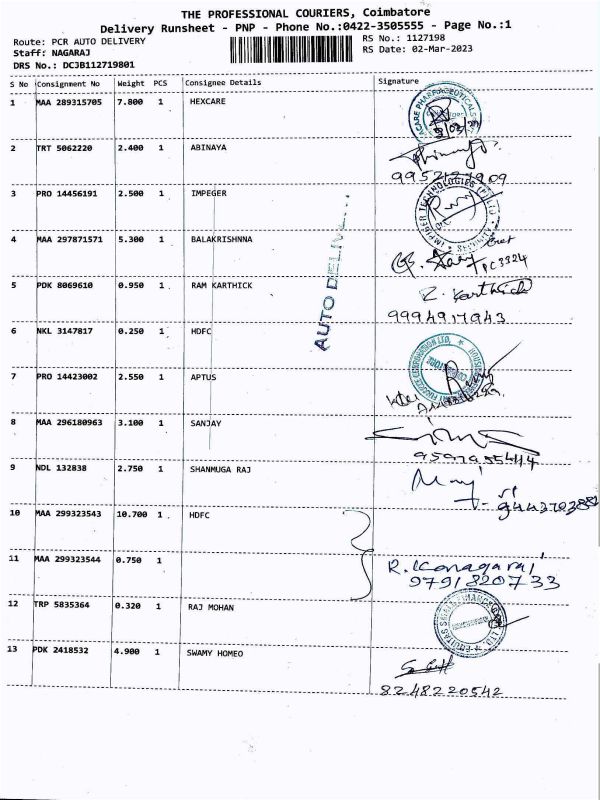 THE PROFESSIONAL COURIERS, Coimbatore
Delivery Runsheet - PNP - Phone No.:0422-3505555 - Page No.:1
Route: PCR AUTO DELIVERY RS No.: 1127198
Staff: NAGARAJ RS Date: 02-Mar-2023
DRS No.: DCJB112719801
S No Consignment No Weight PCS Consignee Details Signature
1 MAA 289315705 7.800 1 HEXCARE
2 TRT 5062220 2.400 1 ABINAYA
3 PRO 14456191 2.500 1 IMPEGER
AUTO DELIVERY
4 MAA 297871571 5.300 1 BALAKRISHNNA
PC3324
5 PDK 8069610 0.950 1 RAM KARTHICK R. Karthick
9994917943
6 NKL 3147817 0.250 1 HDFC
7 PRO 14423002 2.550 1 APTUS
8 MAA 296180963 3.100 1 SANJAY
9597955414
9 NDL 132838 2.750 1 SHANMUGA RAJ
10 MAA 299323543 10.700 1 HDFC
11 MAA 299323544 0.750 1 R. Kanagaraj
9791820733
12 TRP 5835364 0.320 1 RAJ MOHAN
13 PDK 2418532 4.900 1 SWAMY HOMEO
8248220542